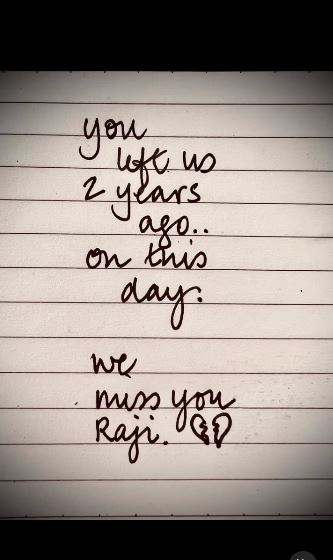 you
left us
2 years
ago..
on this
day.
we
miss you
Raji. 💔